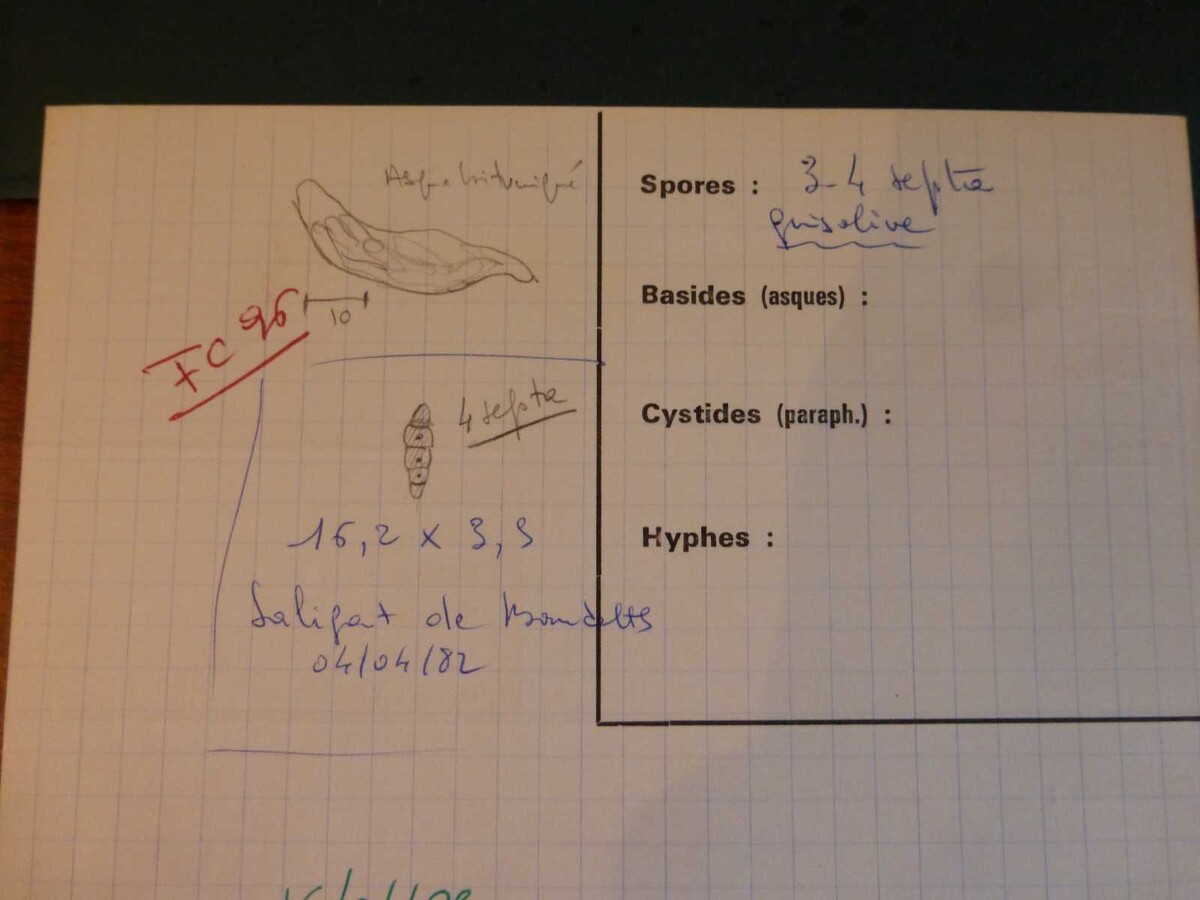 Asque bituniqué
10
FC 96
4 septa
16,2 x 3,3
Saligat de
04/04/82
Spores : 3-4 septa
gris olive
Basides (asques) :
Cystides (paraph.) :
Hyphes :